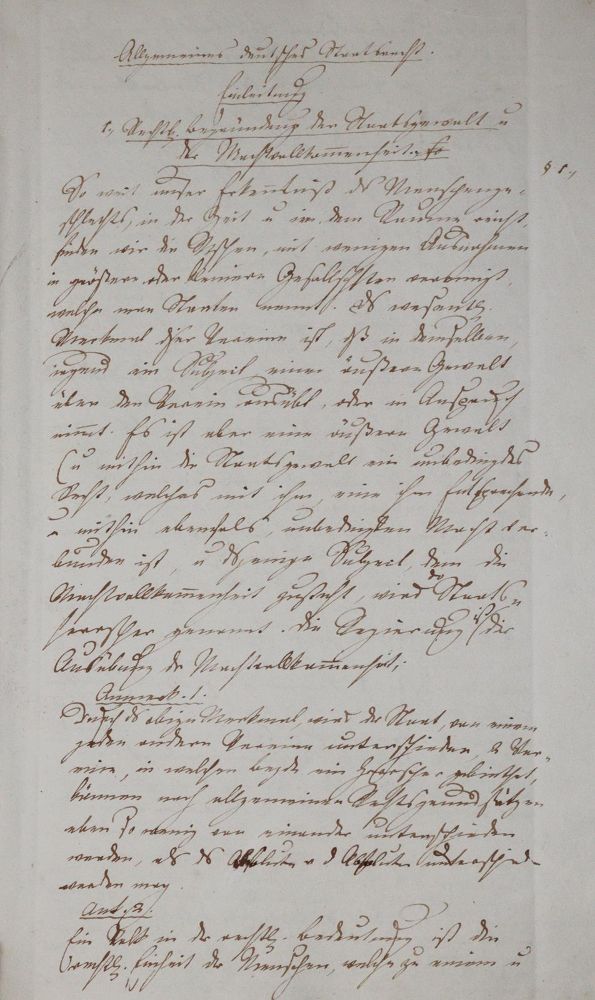 Allgemeines deutsches Staatsrecht.
Einleitung
1., Rechtl. Begründung der Staatsgewalt u
der Machtvollkommenheit.
§ 1.,
So weit unser Erkenntniß ds Menschenge-
schlechts, in der Zeit u im dem Raume reicht,
finden wir die Mschen, mit wenigen Ausnahmen
in größere oder kleinere Gesellschften vereinigt,
welche man Staaten nennt. Ds wesentl.
Merkmal dser Vereine ist, dß in demselben,
irgend ein Subject einer äußere Gewalt
über den Verein ausübt, oder in Anspruch
nimmt. Es ist aber eine äußere Gewalt
(u mithin die Staatsgewalt ein unbedingtes
Recht, welches mit ihm, eine ihm entsprechende,
u mithin ebenfals, unbedingten Macht ver-
bunden ist, u dsjenige Subject, dem die
Machtvollkommenheit zusteht, wird der Staats-
herrscher genannt. Die Regierung ist die
Ausübung der Machtvollkommenheit;
Anmerk. 1.
Durch ds obige Merkmal, wird der Staat, von einem
jeden andern Vereine unterschieden, 2 Ver-
eine, in welchen beyde ein Herrscher gebiethet,
können nach allgemeinen Rechtsgrundsätzen
eben so wenig von einander unterschieden
werden, als ds Absolute v d Absoluten unterschied-
werden mag.
Ant. 2.
Ein Volk in der rechtl. Bedeutung ist die
rechtl. Einheit der Menschen, welche zu einem u